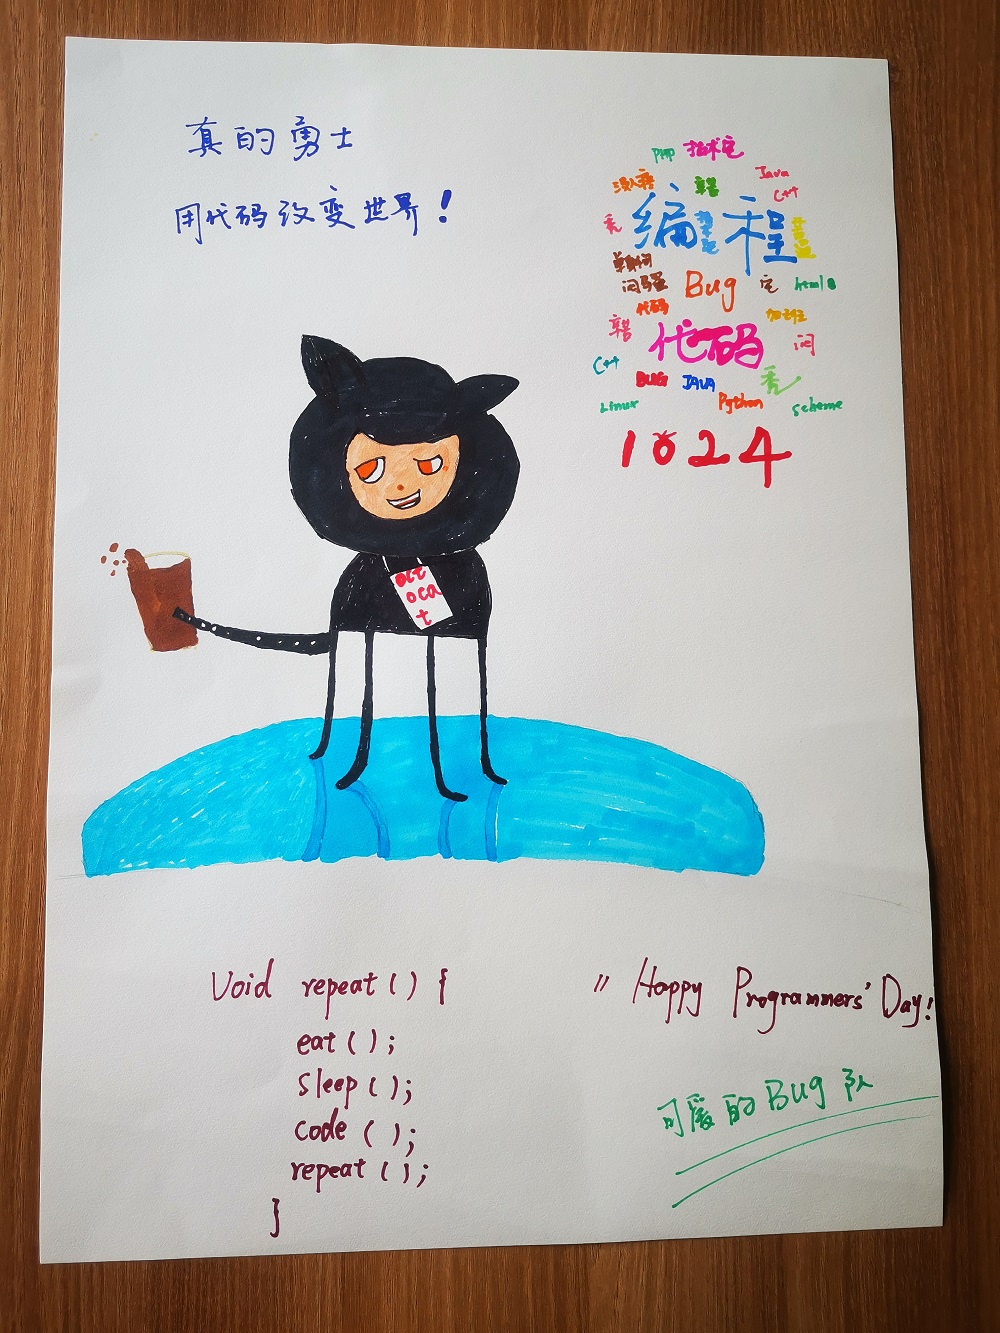 真的勇士
用代码改变世界!
php 技术宅
Java
C++
秃
编程
单身狗
闷骚 Bug 宅 html
代码 加班
代码 闷
C++
BUG JAVA 秃
Linux Python scheme
1024
oct
oca
t
Void repeat() {
eat();
sleep();
code();
repeat();
}
" Happy Programmers' Day!
可爱的Bug队